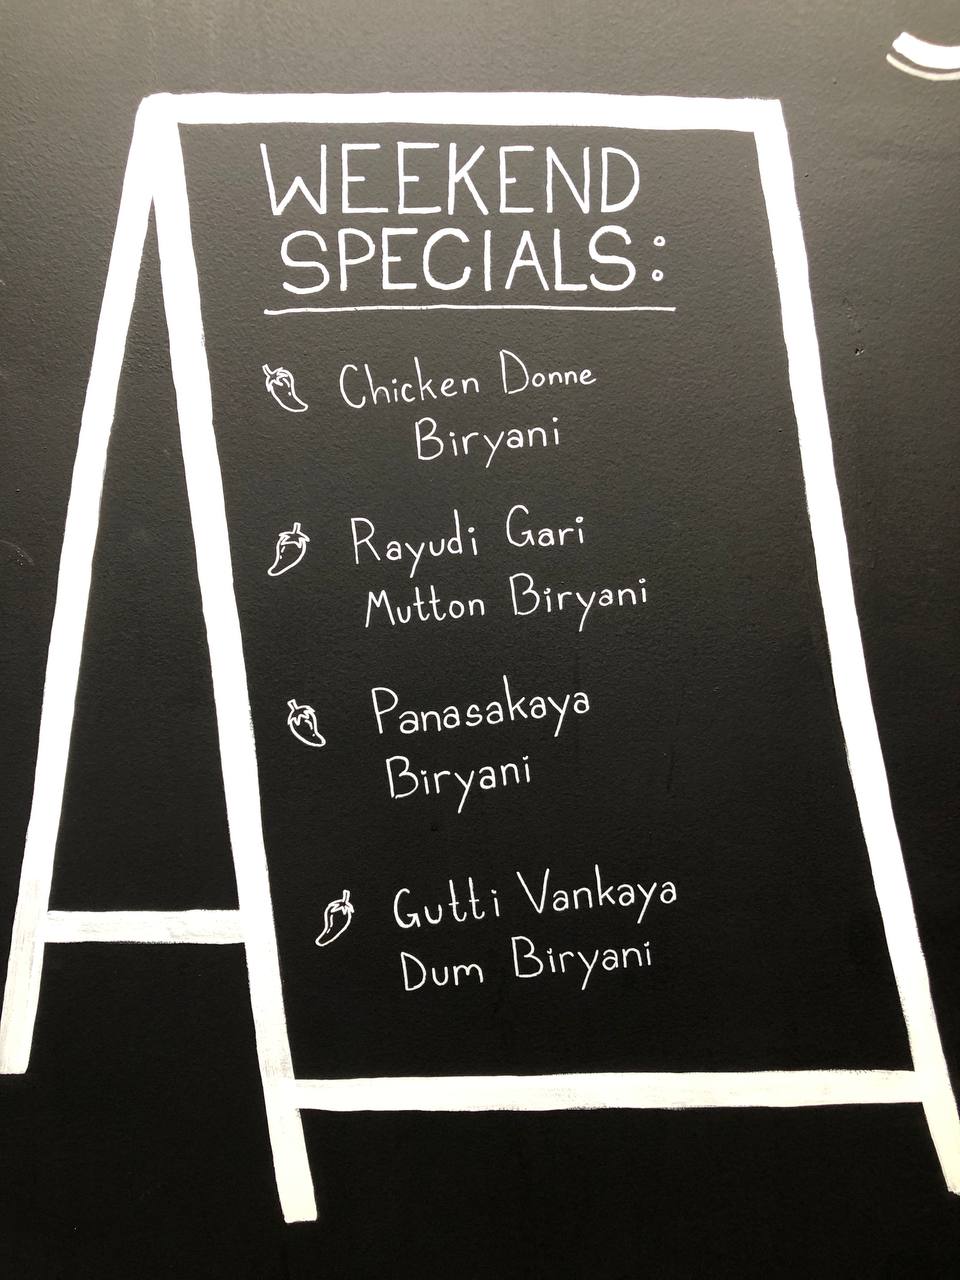 WEEKEND
SPECIALS:
Chicken Donne
Biryani
Rayudi Gari
Mutton Biryani
Panasakaya
Biryani
Gutti Vankaya
Dum Biryani